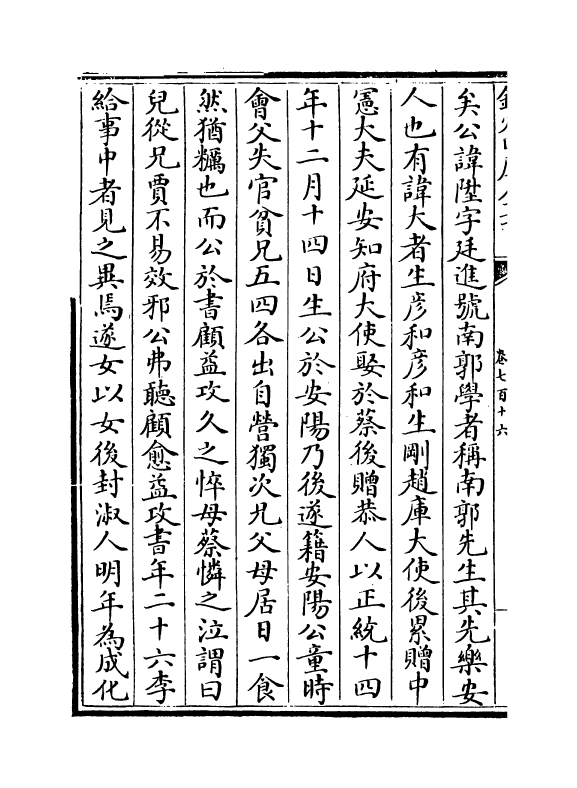 卷七百十六
矣公諱陞字廷進號南郭學者稱南郭先生其先樂安
人也有諱大者生彦和彦和生剛趙庫大使後累贈中
憲大夫延安知府大使娶於蔡後贈恭人以正統十四
年十二月十四日生公於安陽乃後遂籍安陽公童時
會父失官貧兄五四各出自營獨次兄父母居日一食
然猶糲也而公於書顧益攻久之悴母蔡憐之泣謂曰
兒從兄賈不易效邪公弗聽顧愈益攻書年二十六李
給事中者見之異焉遂女以女後封淑人明年為成化